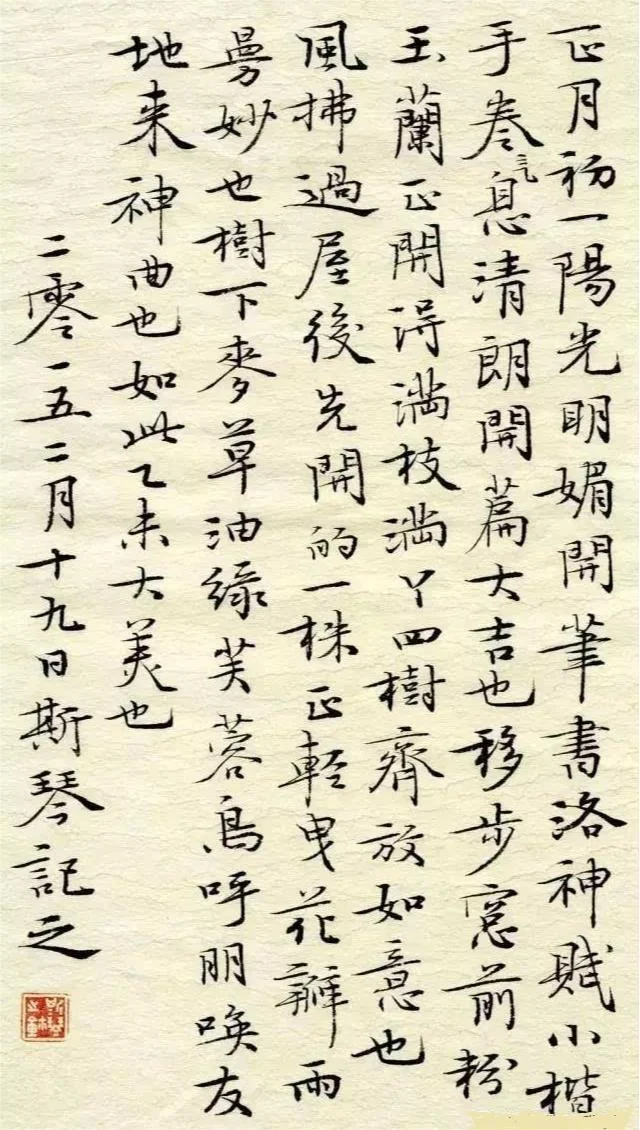 正月初一陽光明媚開筆書洛神賦小楷
手卷气息清朗開篇大吉也移步窓前粉
玉蘭正開得满枝满丫四樹齊放如意也
風拂過屋後先開的一株正輕曳花瓣雨
曼妙也樹下麥草油綠芙蓉鳥呼朋唤友
地来神曲也如此乙未大美也
二零一五二月十九日斯琴記之